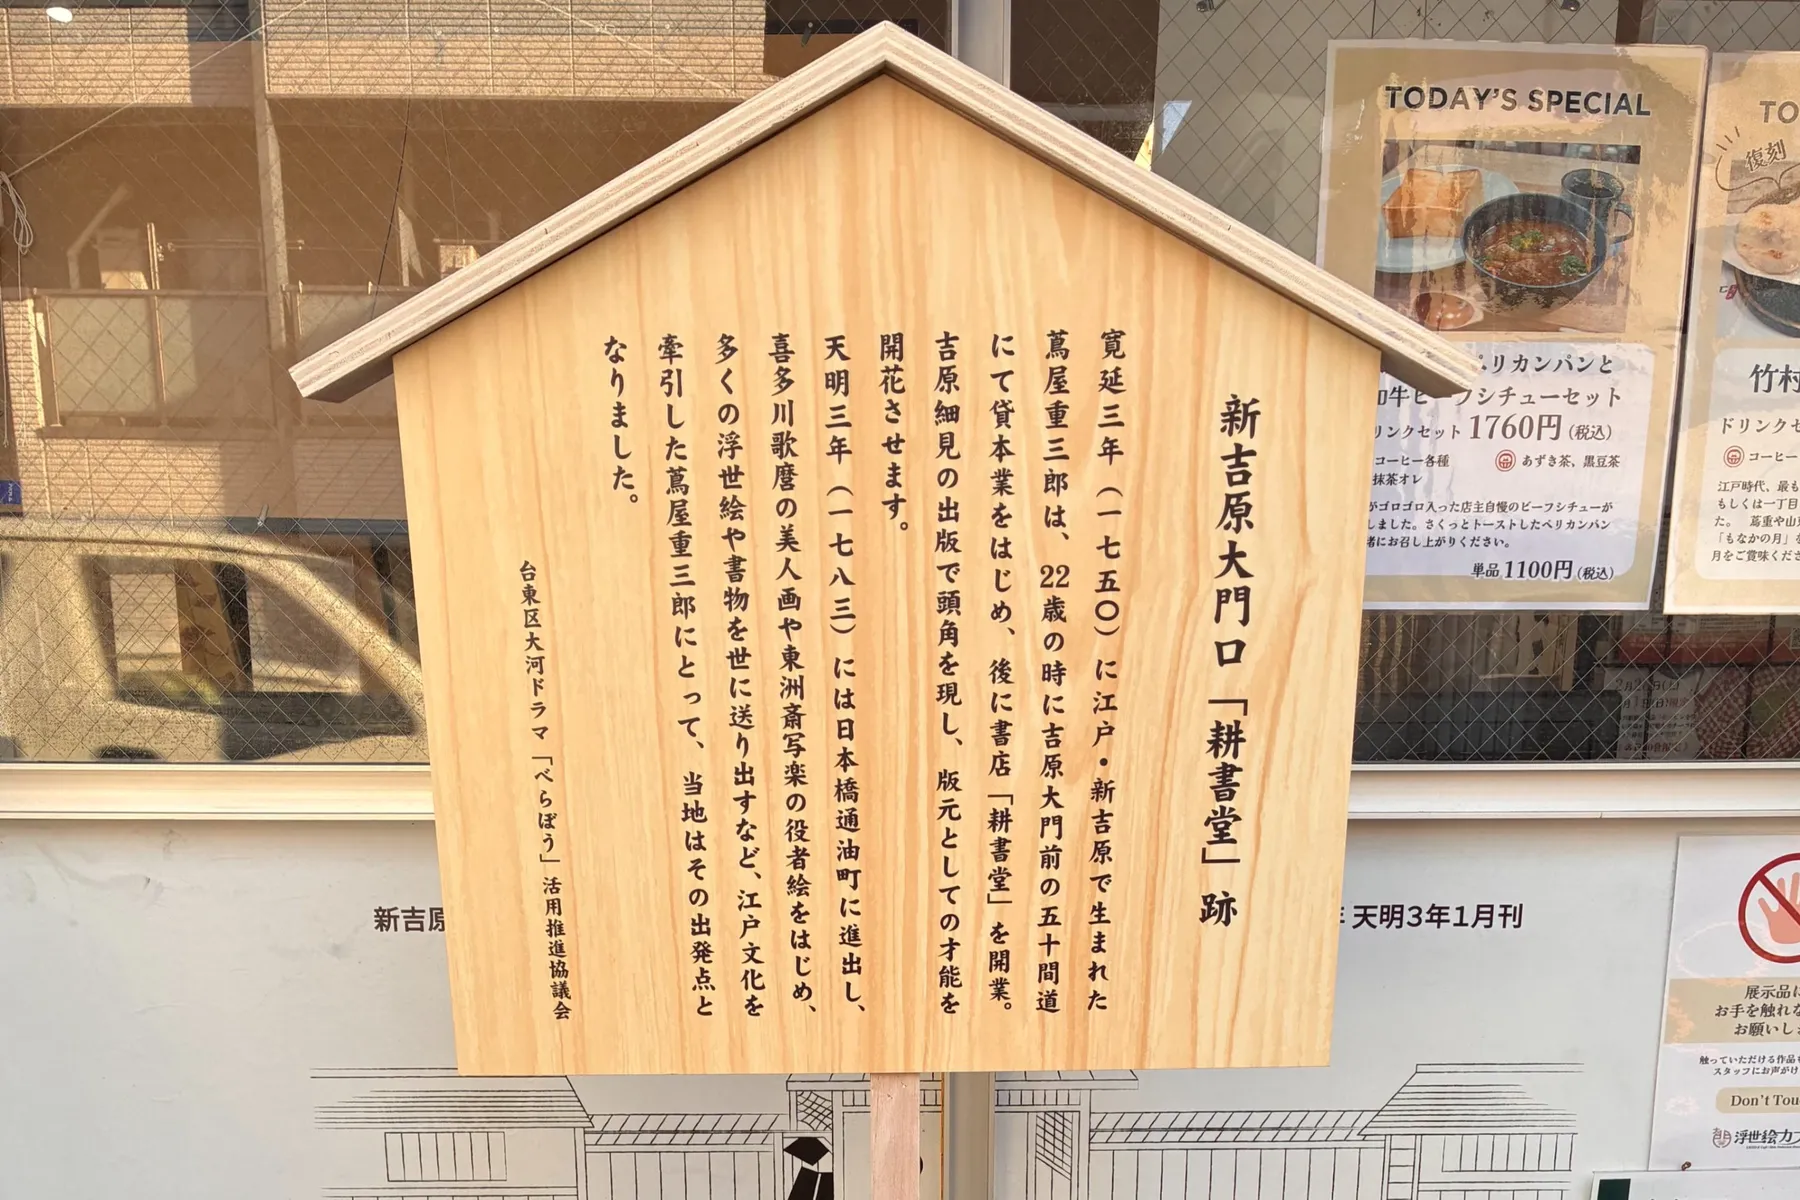 新吉原大門口「耕書堂」跡
寛延三年（一七五〇）に江戸・新吉原で生まれた
蔦屋重三郎は、22歳の時に吉原大門前の五十間道
にて貸本業をはじめ、後に書店「耕書堂」を開業。
吉原細見の出版で頭角を現し、版元としての才能を
開花させます。
天明三年（一七八三）には日本橋通油町に進出し、
喜多川歌麿の美人画や東洲斎写楽の役者絵をはじめ、
多くの浮世絵や書物を世に送り出すなど、江戸文化を
牽引した蔦屋重三郎にとって、当地はその出発点と
なりました。
台東区大河ドラマ「べらぼう」活用推進協議会
TODAY'S SPECIAL
リカンパンと
シチューセット
リンクセット 1760円(税込)
コーヒー各種
あずき茶、黒豆茶
抹茶オレ
ゴロゴロ入った店主自慢のビーフシチューが
しました。さくっとトーストしたペリカンパン
緒にお召し上がりください。
単品 1100円(税込)
TO
復刻
竹村
ドリンクセ
コーヒー
江戸時代、最も
もしくは一丁目
た。 蔦重や山東
「もなかの月」を
月をご賞味くださ
新吉原
天明3年1月刊
展示品に
お手を触れな
お願いし
触っていただける作品も
スタッフにお声がけ
Don't Tou
浮世絵カフ